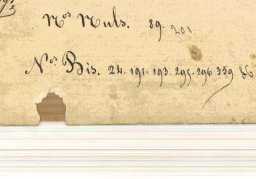 Nos Nuls. 89. 201
Nos Bis. 24. 191. 193. 295. 296. 359